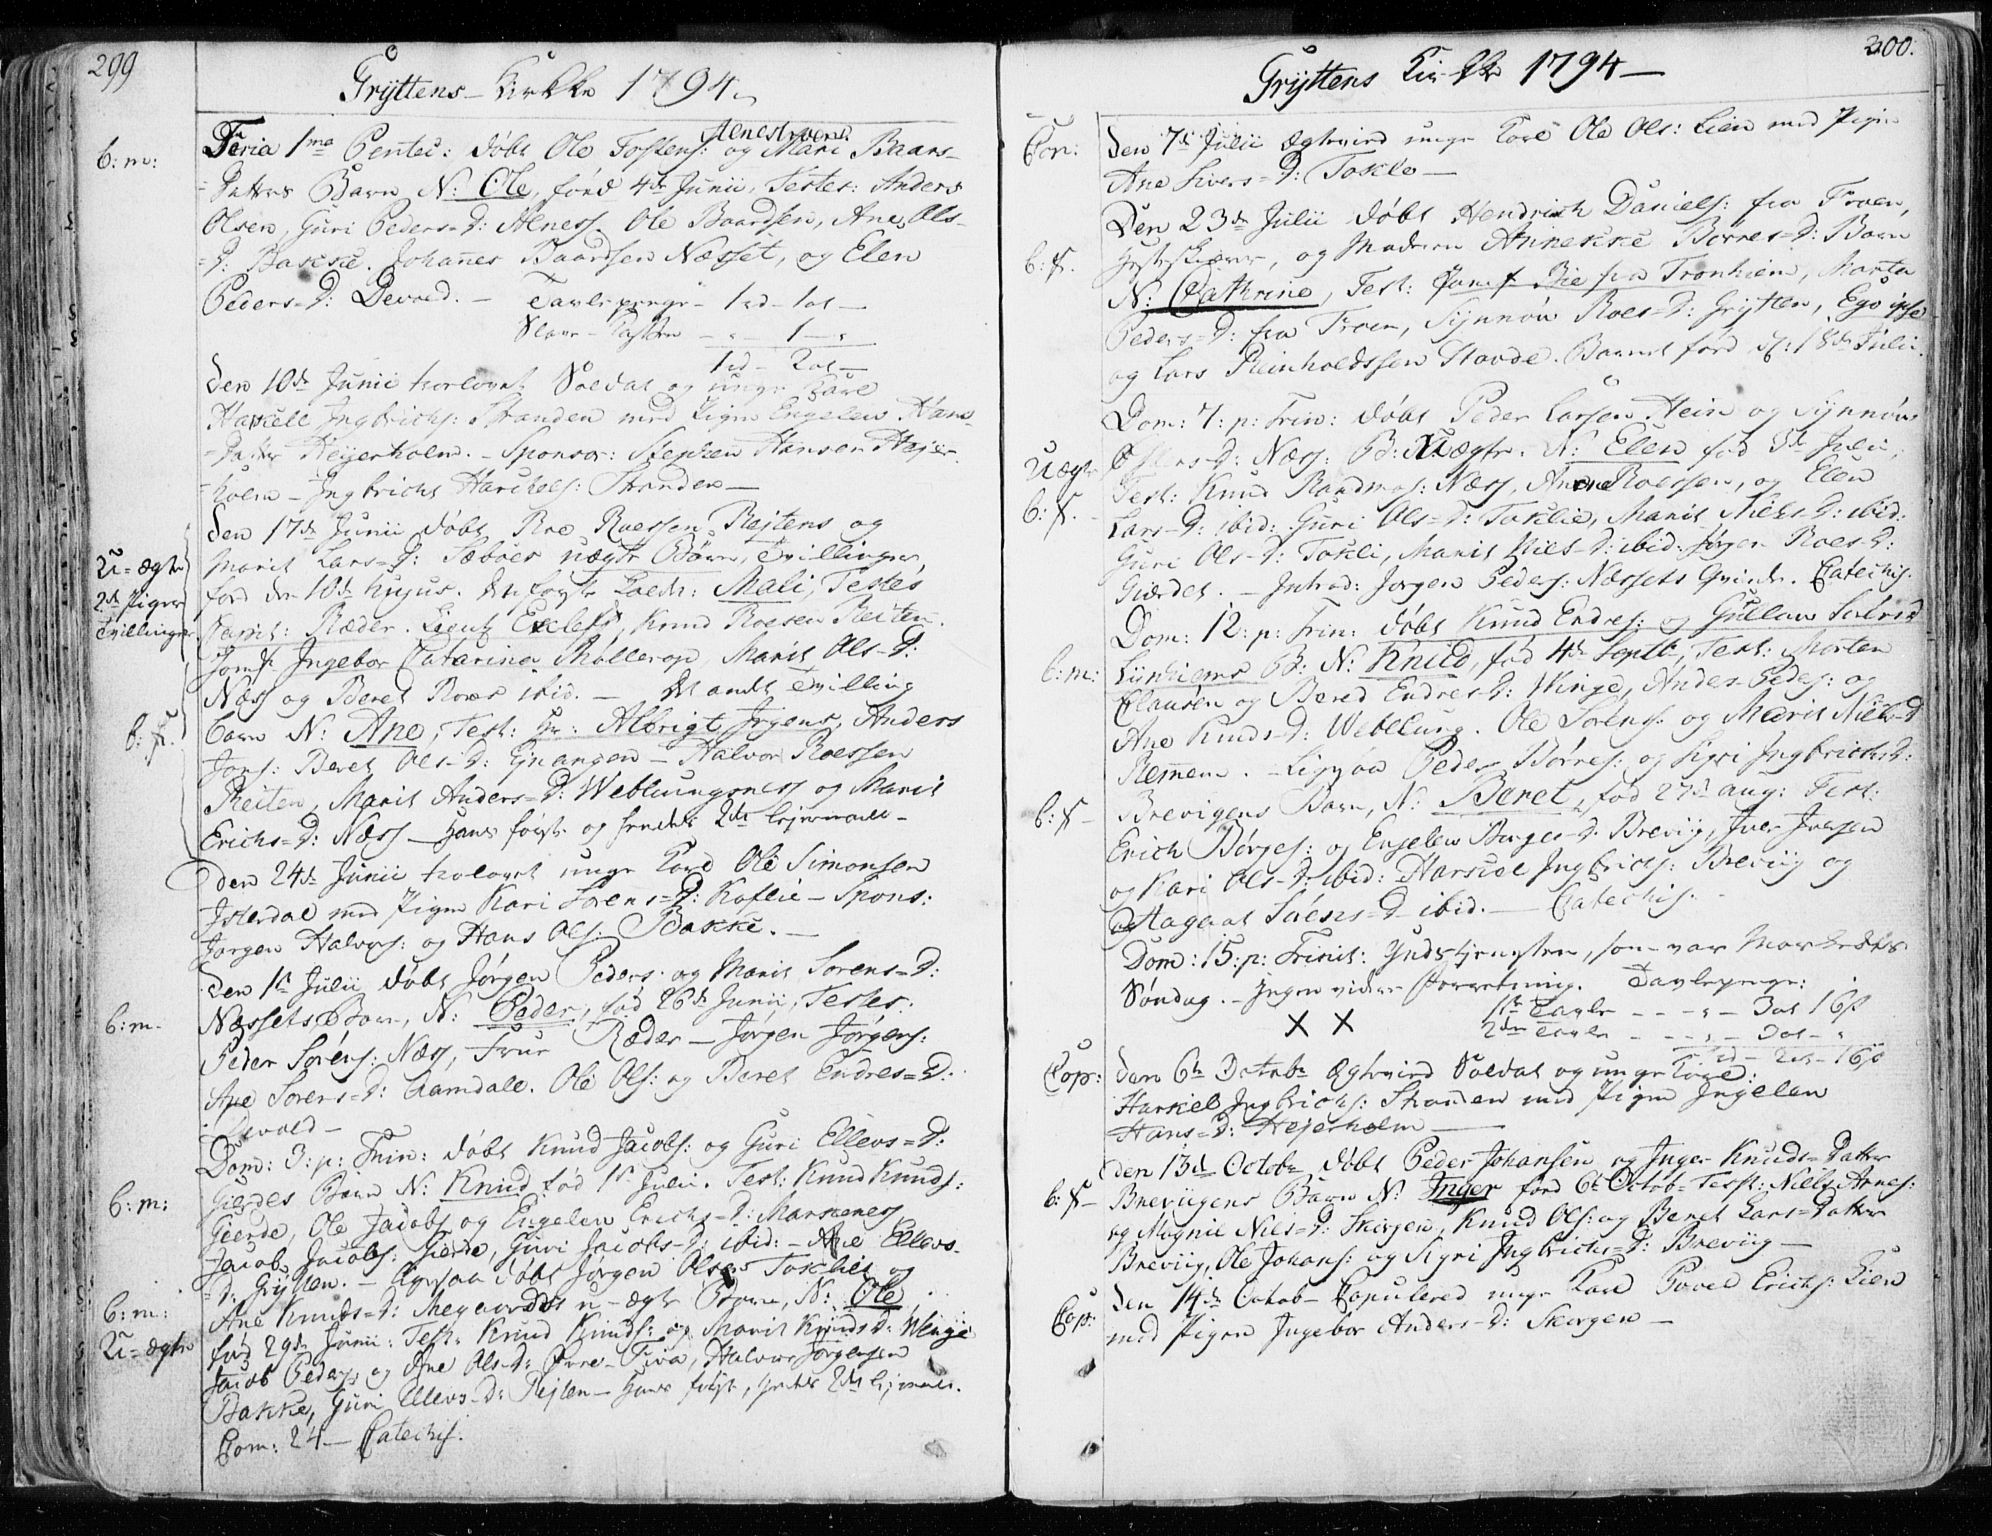 299
Gryttens Kirkke 1794.
b: m:
Feria 1ma Pentec: døbt Ole Tostens: og Mari Baars-
Alnestrøens
Datters Barn N: Ole, fönd 4de Junii, Testes: Anders
Olsen, Guri Peders=D: Alness. Ole Baardsen, Ane Ols-
D: Bakke. Johanes Baardsen Næsset, og Elen
Peders=D: Devold. — Tavlepenge - 1rd - 1ort —
1 — "
1rd - 2ort —
Den 10de Junii trolovet Soldat og unge Karl
Harkell Ingbrichs: Stranden med Pigen Engelen Hans-
Datter Heyerholm. - Sponsor: Stephen Hansen Hejer-
holm - Ingbricht Harchels: Stranden —
Den 17de Junii døbt Roe Roessen Rejtens og
U=ægte
2de Piger
Tvillinger
Marit Lars=D: Sæbøes uægte Børn, Tvillinger,
fød den 10de hujus. Det første kaldt: Mali, Testes
Ræder. Lieut Knud Roesen Reiten.
Jomfr Ingebor Catarina Møllerop, Marit Ols-D:
Næss og Beret Roes ibid. — Det andet Tvilling
b: F.
barn N: Ane, Test: Hr: Albrigt Jrgens, Anders
Jons: Beret Ols-D: Gnangen - Halvor Roessen
Reiten, Marit Anders=D: Weblungsness og Marit
Erichs=D: Næss — Hans første og hendes 2det Lejermaal -
Den 24de Junii trolovet unge Karl Ole Simonsen
Isterdal med Pigen Kari Sorens=D: Kaflie - Spons:
Jørgen Halvors: og Hans Ols: Bakke. —
Den 1ste Julii døbt Jørgen Peders: og Marit Sorens=D:
b: m.
Næssets Barn, N: Peder, fød 26de Junii, Testes:
Peder Sörens: Næss, Frue Ræder - Jørgen Jørgens:
Ane Sorens=D: Aamdale. Ole Ols: og Beret Endres=D:
Devold —
Dom: 3: p: Trin: døbt Knud Jacobs: og Guri Ellevs=D:
b: m:
Gierdes Barn N: Knud fød 1ste Julii. Test: Knud Knuds:
Gierde, Ole Jacobs og Engelen Erichs=D: Marstenes
Jacob Jacobs: Gierde, Guri Jacobs-D: ibid: - Ane Ellevs-
D: Grytten. - Ligesaa døbt Jørgen Olsens Toklies og
b: m:
U=ægte
Ane Knuds=D: u-ægte Barn, N: Ole,
fød 29de Junii: Test: Knud Knuds: og Marit Knuds D: Wenge
Jacob Peders: og Ane Ols-D: Øvre-Tiva, Halvor Jørgensen
Bakke, Guri Ellevs-D: Rejten - Hans første, hendes 2det Lejermaal.
Com: 24 — Catechis:
200.
Gryttens Kirkke 1794 —
Cop:
Den 7de Julii Ægteviet unge Karl Ole Ols: Lien med Pigen
Ane Sivers=D: Tokle —
Den 23de Julii døbt Hendrich Daniels: fra Troen,
b: F.
og Madam Annekke Børres=D: Barn
N: Cathrine, Test: Jomfr Bie fra Tronhiem, Marta
Peders=D: fra Troen, Synnöv Roes=D: Grytten, Ego ipse
og Lars Reinholdssen Hovde. Barnet fød d: 18de Julii.
Dom: 7: p: Trin: døbt Peder Larsen Hein og Synnöv
Uægte
b: F.
D: Næss: B: Uægte. N: Elen fød Julii,
Test: Knud Raadmos: Næss, Roessen, og Elen
Lars-D: ibid: Guri Ols=D: Toklie, Marit Niels D: ibid:
Guri Ols-D: Tokli, Marit Nils-D: ibid: Roes-D:
Giærdet. — Introd: Jørgen Peders: Næssets Qvinde. Catechis:
Dom: 12: p: Trin: døbt Knud Endres: og Gullau
b: m:
B: N: Knud, fød 4de Septb, Test: Morten
Clausen og Bered Endres-D: Winge, Anders Peders: og
Ane Knuds-D: Weblung. Ole Sörens: og Marit Niels-D
Remmem. - Ligesaa Peder Børres: og Siri Ingbrichs D:
b: F -
Brevigens Barn, N: Beret, fød 27de aug: Test:
Erich Børges: og Engelen Borges-D: Breviig, Iver Iversen
og Kari Ols-D: ibid: Harkiel Ingbrichs: Breviig og
og Aagaat D- ibid. — Catechis. -
Dom: 15: p: Trinit: Gudstjenesten, som var
Søndag. - Ingen videre Forretning. Tavlepenge:
1ste Tavle - - - " - 3ort 16s
X X
2den Tavle - - - " - 3ort - "
1rd - 2ort - 16s
Cop:
Den 6te Octobr Ægteviet Soldat og unge Karl:
Harkiel Ingbrichs: Stranden med Pigen Ingelen
Hans=D: Hejerholm —
Den 13de Octobr døbt Peder Johansen og Inger Knuds=Datter
b: F -
Breviigens Barn N: Inger fød 6te Octob= Test: Niels Arnes:
og Magnil Nils=D: Skorgen, Knud Ols: og Beret Lars=Datter
Breviig, Ole Johans: og Syri Ingbrichs=D: Breviig —
Cop:
Den 14de Octob- Copulered unge Karl Povel Erichs: Lien
med Pigen Ingebor Anders-D: Skorgen —